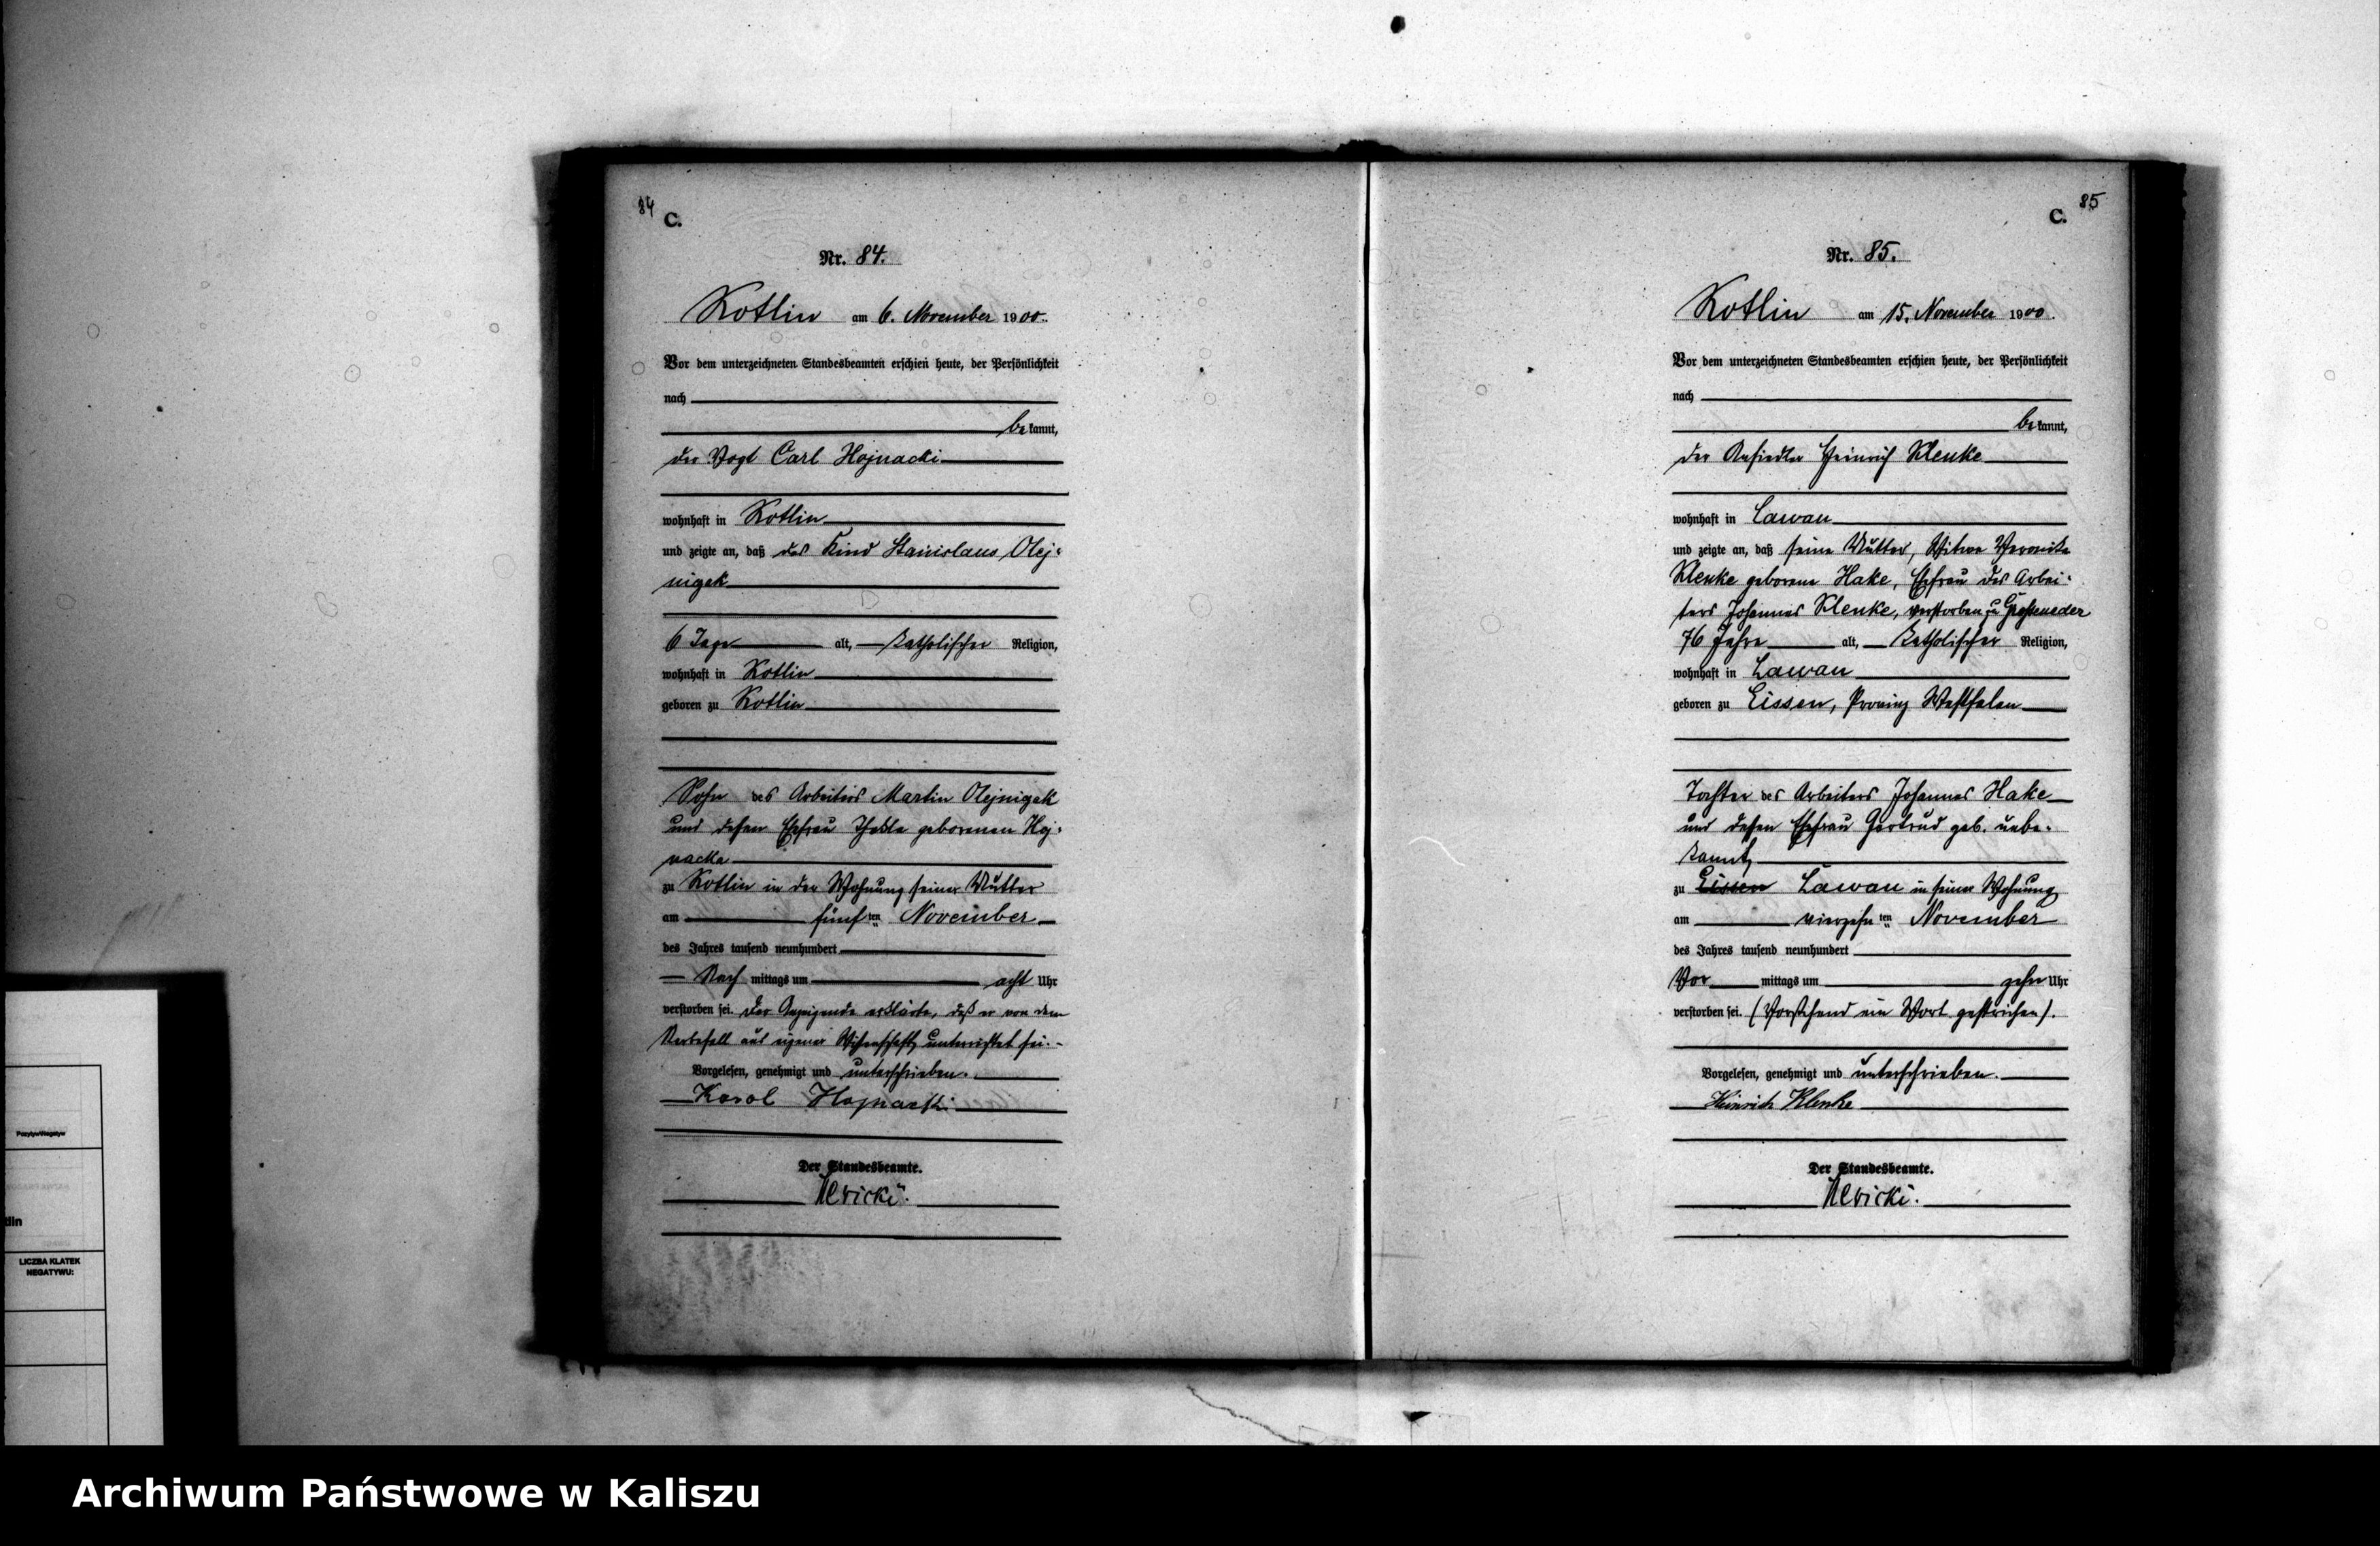 84
C.
Nr. 84.
Kotlin am 6. November 1900.
Vor dem unterzeichneten Standesbeamten erschien heute, der Persönlichkeit
nach
bekannt,
der Vogt Carl Hojnacki
wohnhaft in Kotlin
und zeigte an, daß das Kind Stanislaus Olej-
nigak
6 Tage alt, katholischer Religion,
wohnhaft in Kotlin
geboren zu Kotlin
Sohn des Arbeiters Martin Olejnigak
und dessen Ehefrau Thekla geborenen Hoj-
nacka
zu Kotlin in der Wohnung seiner Mutter
am fünften November
des Jahres tausend neunhundert
Nachmittags um acht Uhr
verstorben sei. Der Anzeigende erklärte, daß er von dem
Sterbefall aus eigener Wissenschaft unterrichtet sei.
Vorgelesen, genehmigt und unterschrieben.
Karol Hojnacki
Der Standesbeamte.
85
C.
Nr. 85.
Kotlin am 15. November 1900.
Vor dem unterzeichneten Standesbeamten erschien heute, der Persönlichkeit
nach
bekannt,
der Ansiedler Heinrich Klenke
wohnhaft in Lawau
und zeigte an, daß seine Mutter, Witwe Veronika
Klenke geborene Hake, Ehefrau des Arbei-
ters Johannes Klenke, verstorben zu
76 Jahre alt, katholischer Religion,
wohnhaft in Lawau
geboren zu Eissen, Provinz Westfalen
Tochter des Arbeiters Johannes Hake
und dessen Ehefrau Gertrud geb. unbe-
kannt,
zu Eissen Lawau in seiner Wohnung
am vierzehnten November
des Jahres tausend neunhundert
Vormittags um zehn Uhr
verstorben sei. (Vorstehend ein Wort gestrichen).
Vorgelesen, genehmigt und unterschrieben.
Heinrich Klenke
Der Standesbeamte.
Pozytyw/Negatyw
LICZBA KLATEK
NEGATYWU:
Archiwum Państwowe w Kaliszu